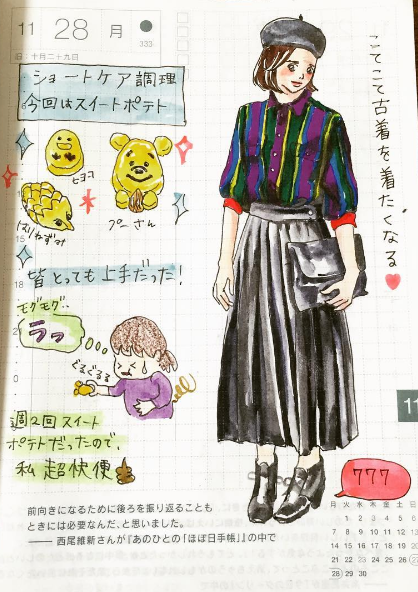 11 28 月
333
旧:十月二十九日
ショートケア調理
今回はスイートポテト
ヒヨコ
はりねずみ
プーさん
皆とっても上手だった!
モグモグ
ラっ
ぐるぐるる
週2回スイート
ポテトだったので、
私 超快便
こてこて古着を着たくなる
11
777
前向きになるために後ろを振り返ることも
ときには必要なんだ、と思いました。
—— 西尾維新さんが『あのひとの「ほぼ日手帳」』の中で
月 火 水 木 金 土 日
1 2 3 4 5 6
7 8 9 10 11 12 13
14 15 16 17 18 19 20
21 22 23 24 25 26 27
28 29 30